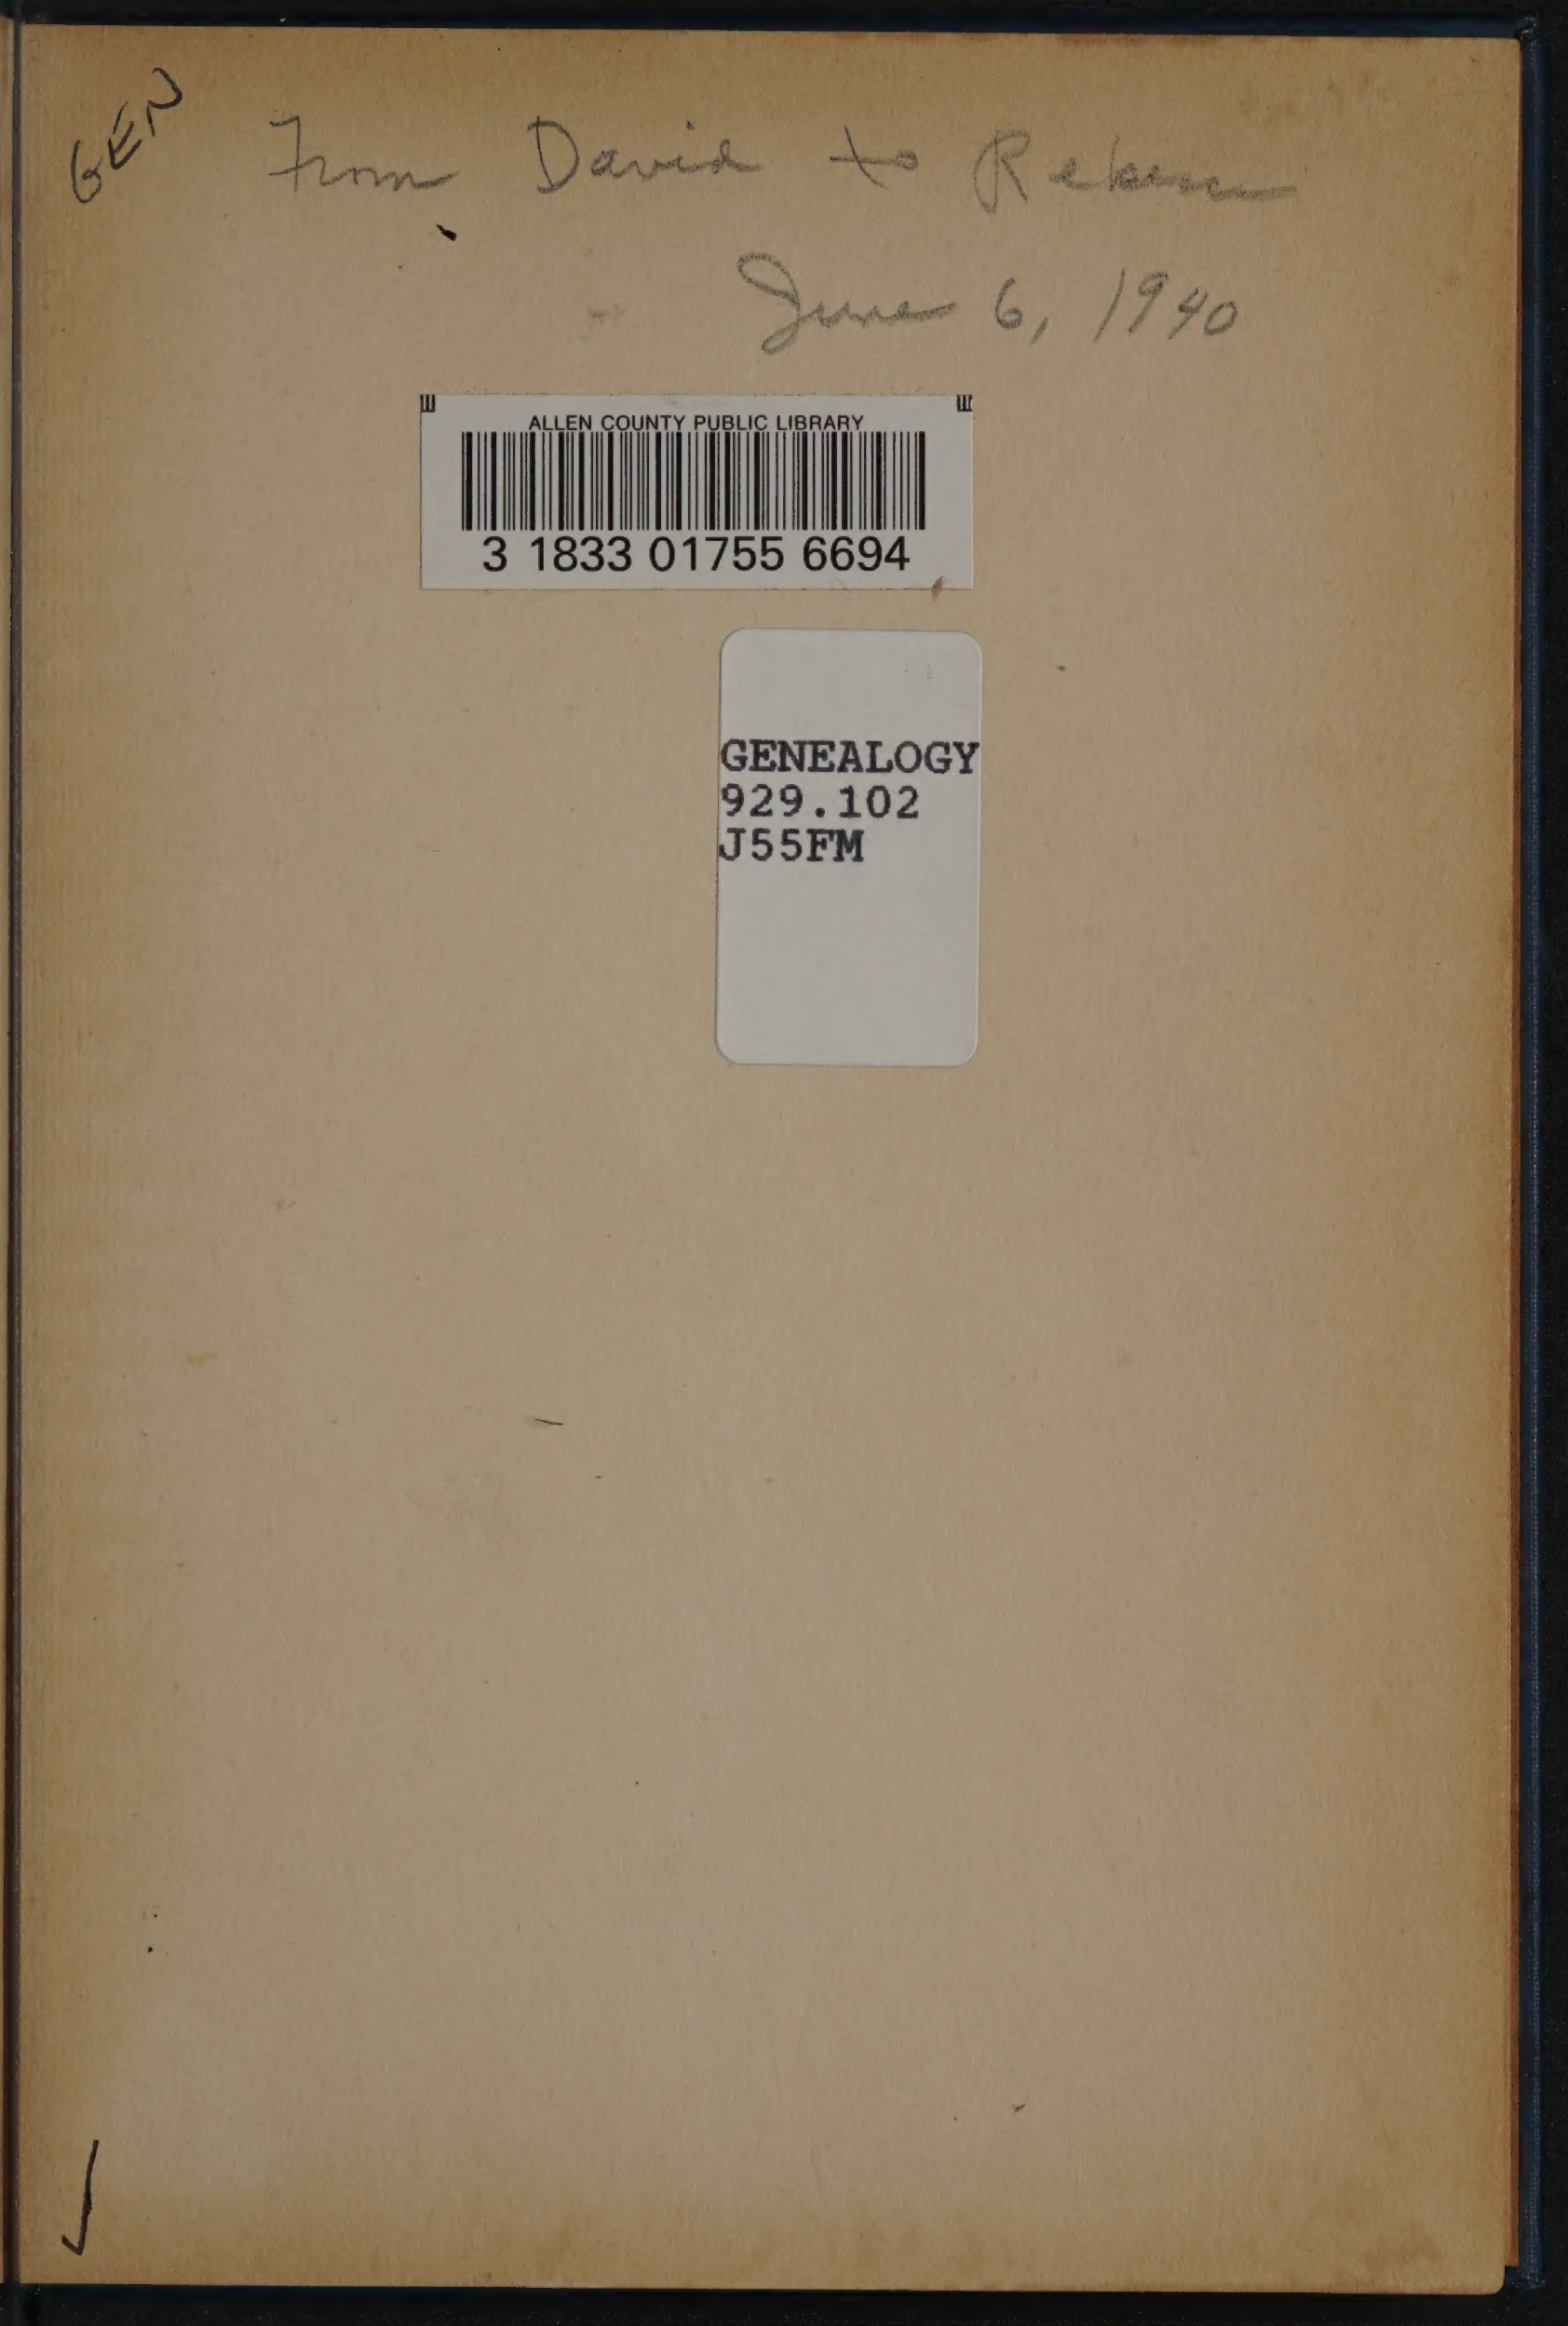 GEN
From David to
June 6, 1940
ALLEN COUNTY PUBLIC LIBRARY
3 1833 01755 6694
GENEALOGY
929.102
J55FM